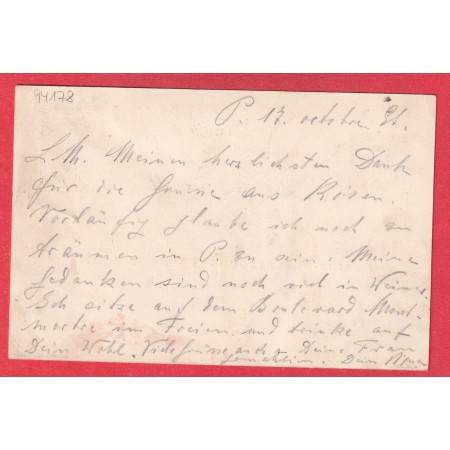 94178
P. 17. octobre 91.
L. M. Meinen herzlichsten Dank
für die Grüsse aus Kösen.
Vorläufig glaube ich noch zu
träumen in P. zu sein. Meine
Gedanken sind noch viel in Weimar.
Ich sitze auf dem Boulevard Mont-
martre im Freien und trinke auf
Dein Wohl. Viele Grüsse auch Deine Frau
Gemahlin. Dein